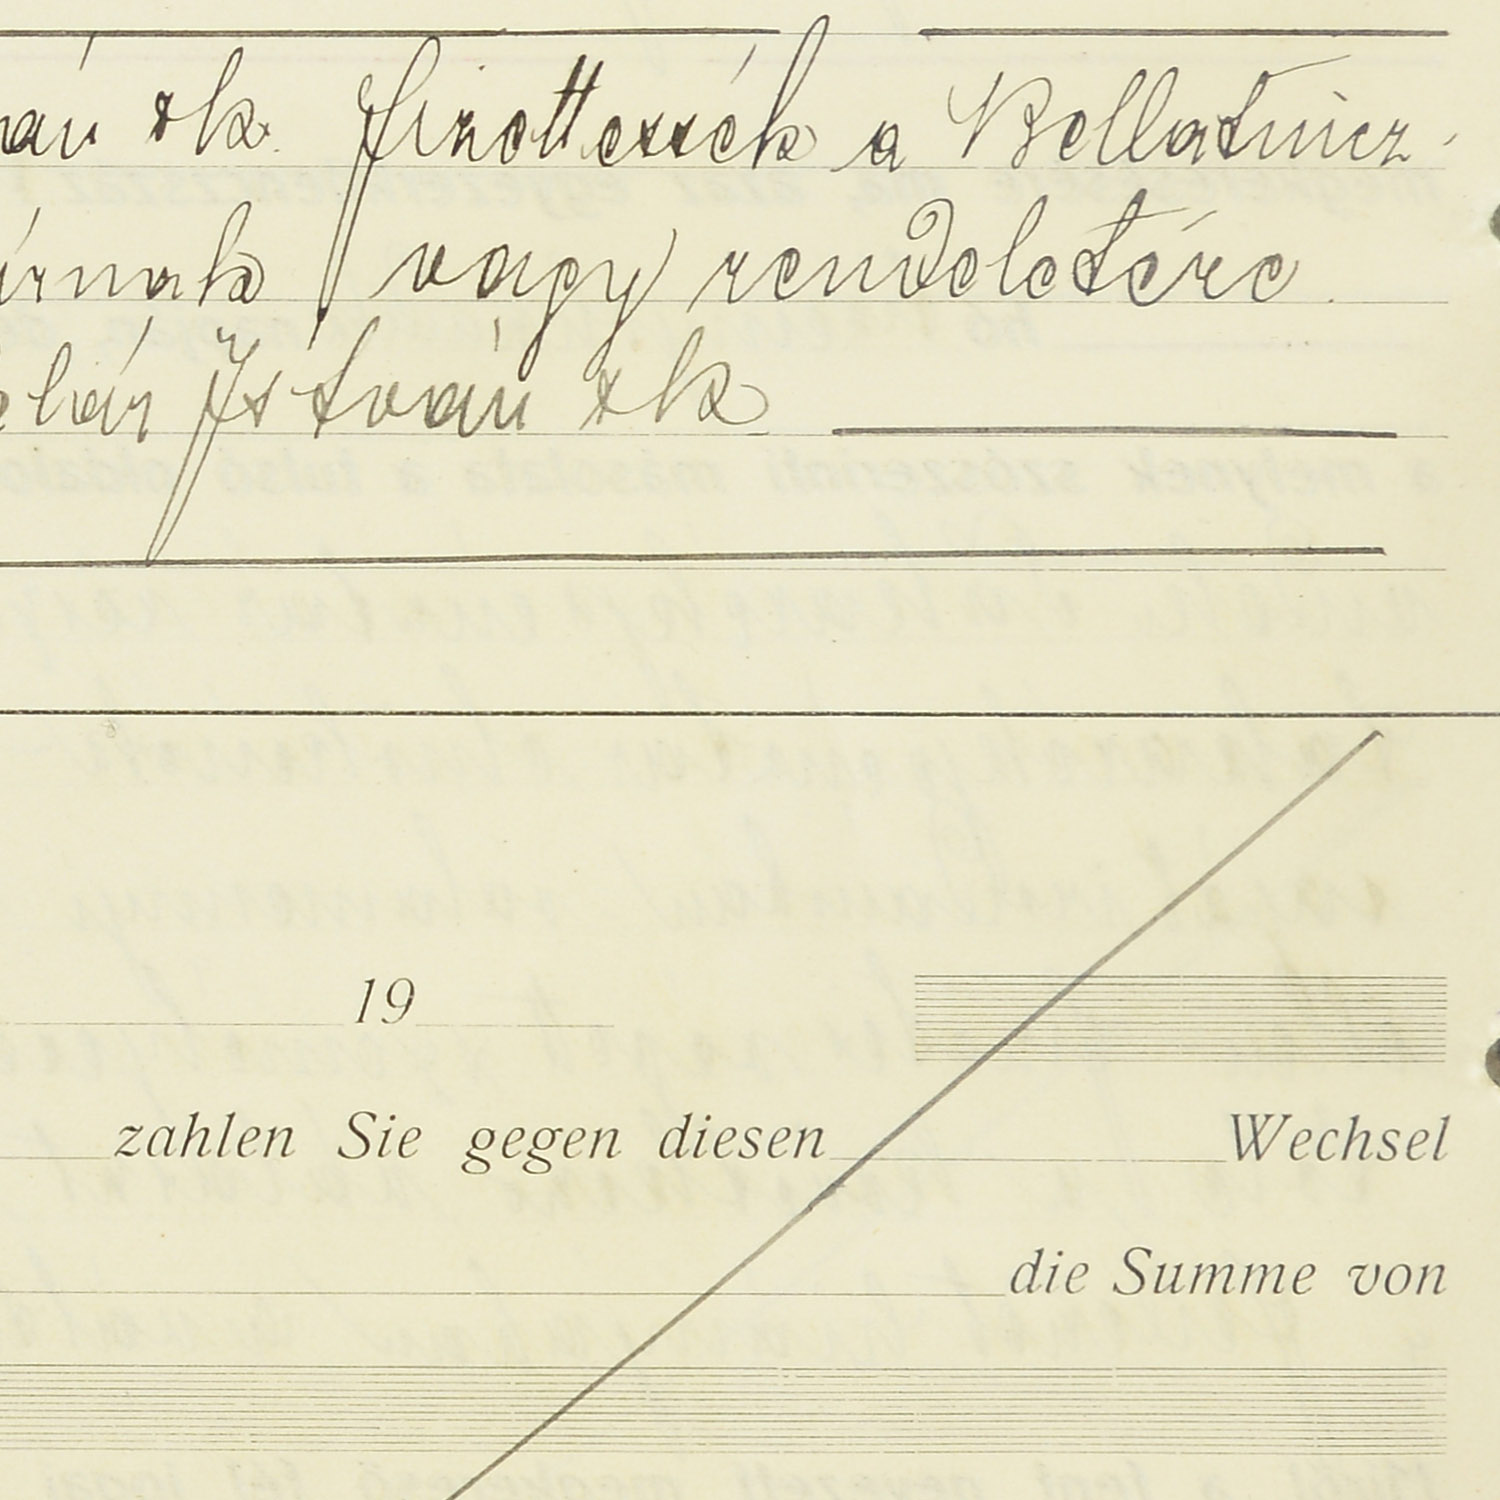 ván sk. fizettessék a Bellatincz-
árnak vagy rendeletére
István sk
19
zahlen Sie gegen diesen Wechsel
die Summe von